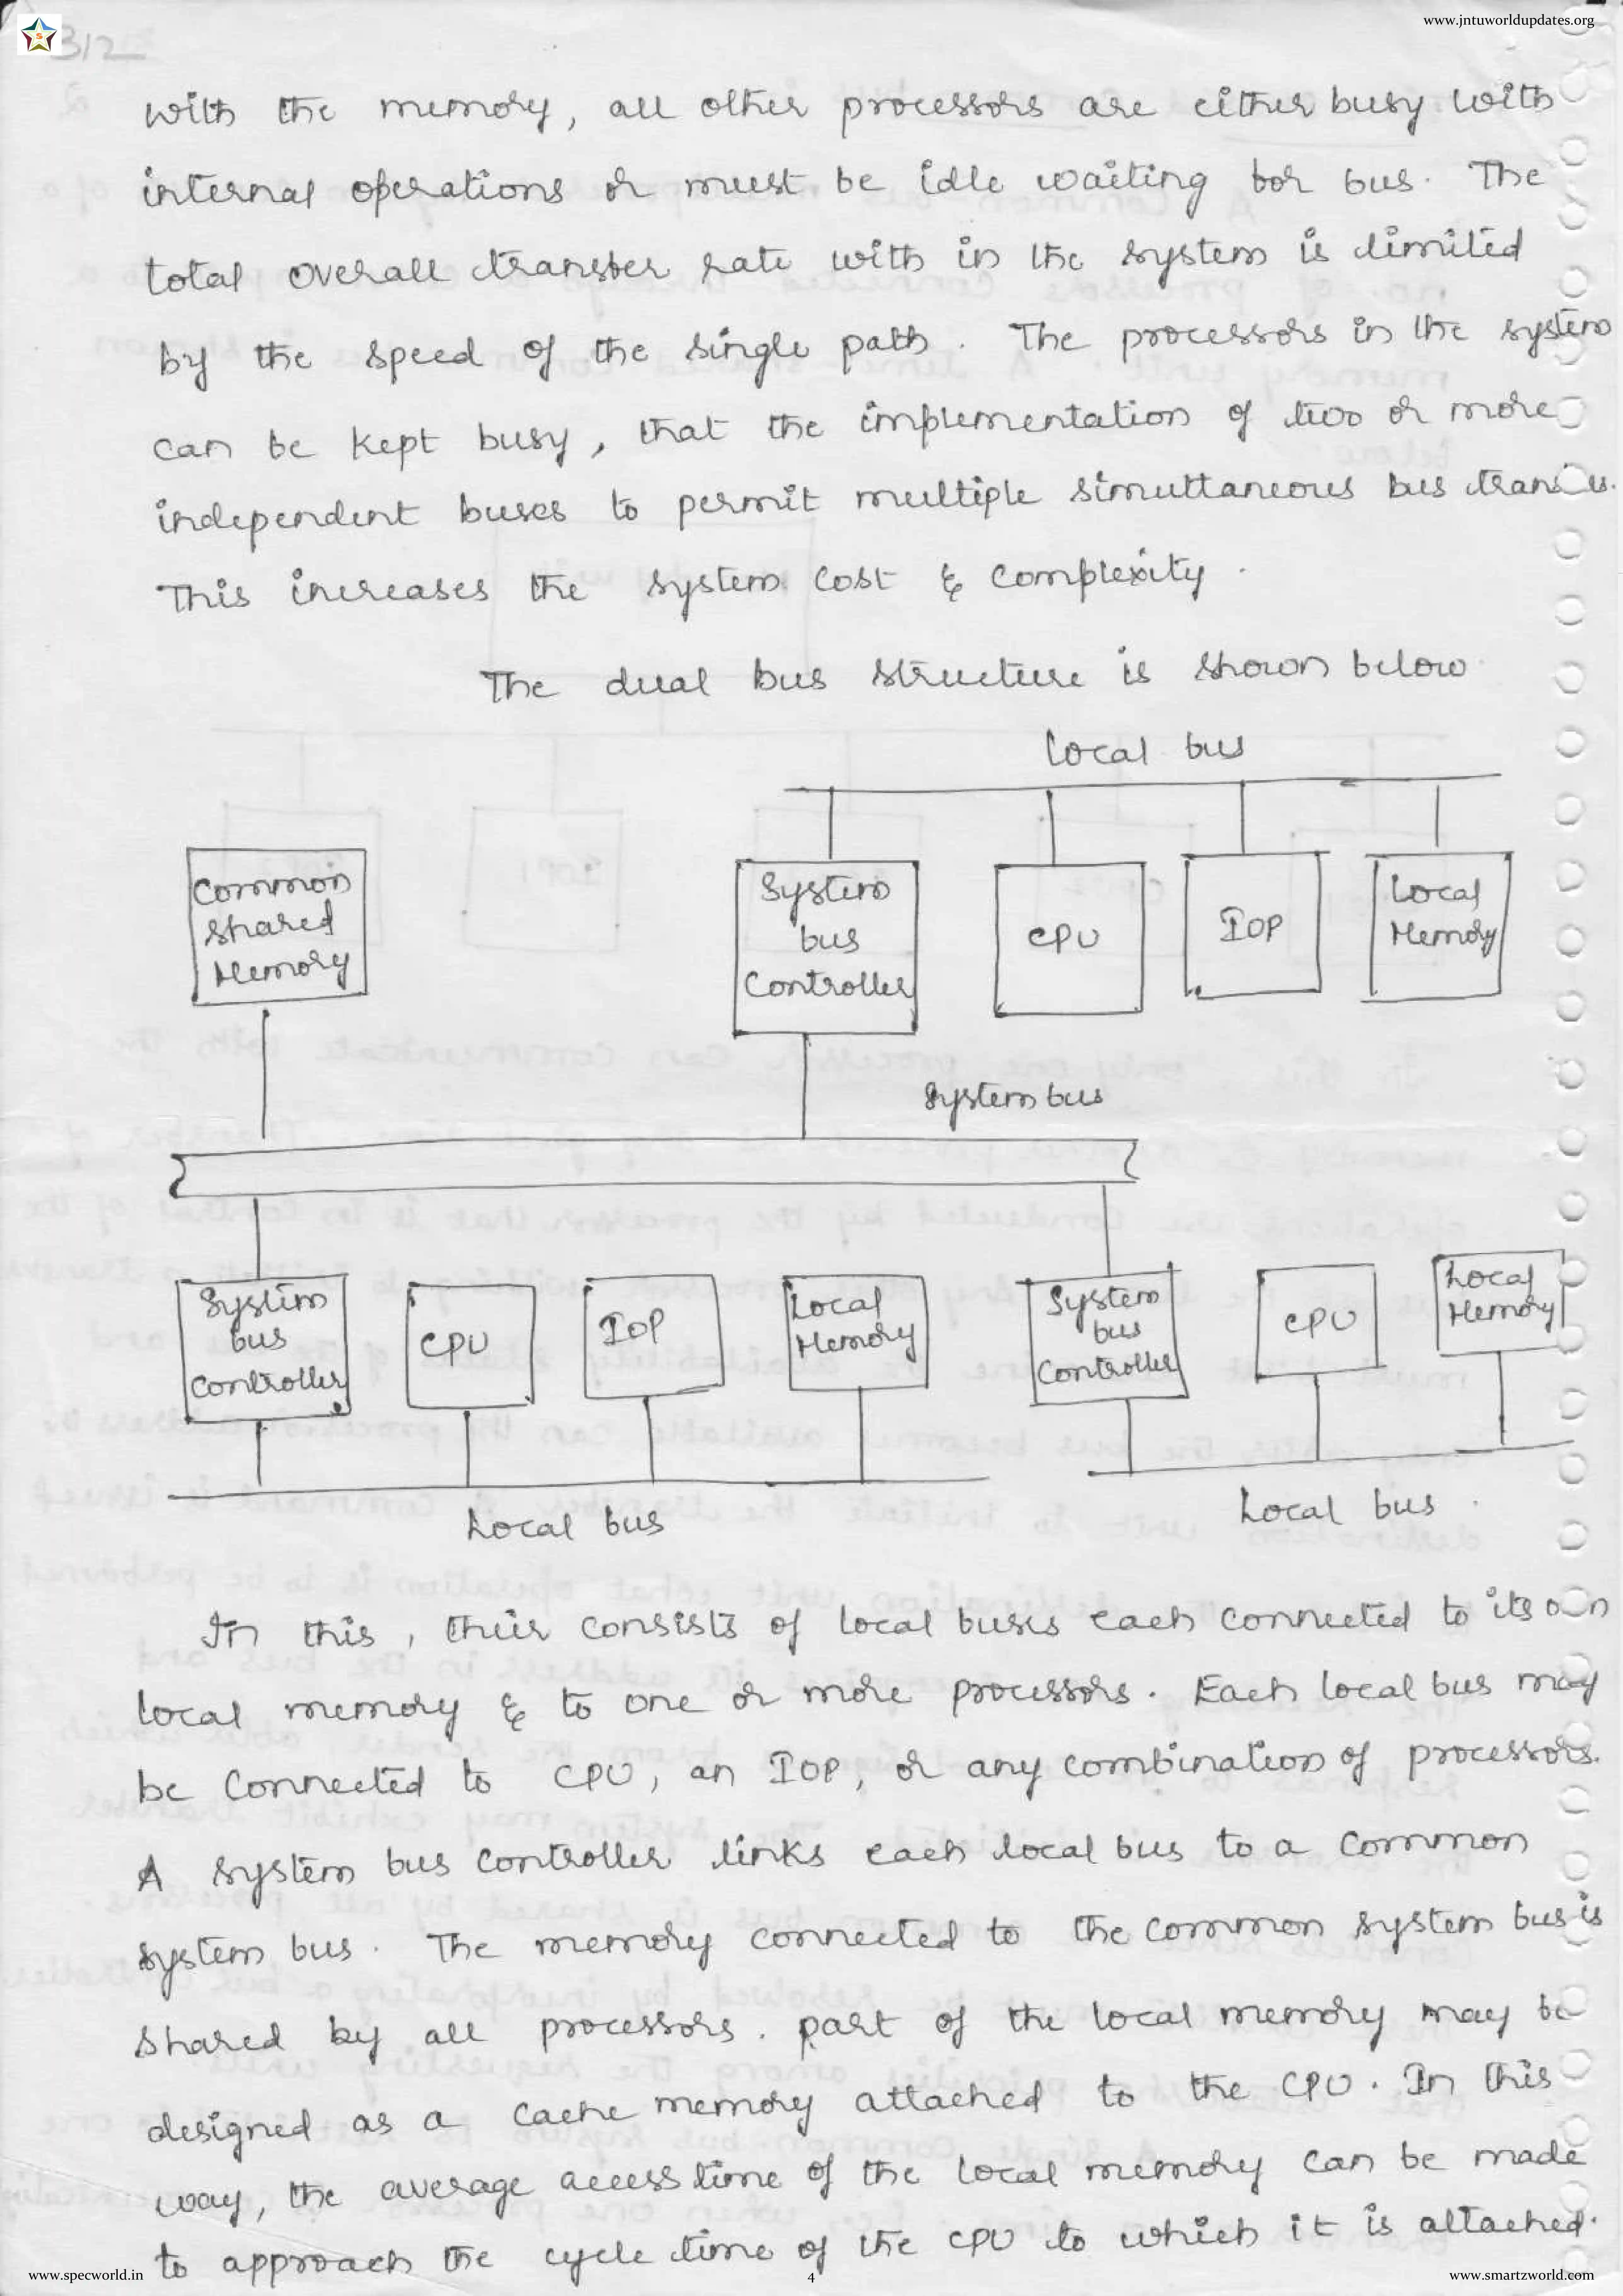 www.jntuworldupdates.org
312
with the memory, all other processors are either busy with
internal operations or must be idle waiting for bus. The
total overall transfer rate with in the system is limited
by the speed of the single path. The processors in the system
can be kept busy, that the implementation of two or more
independent buses to permit multiple simultaneous bus
This increases the system cost & complexity.
The dual bus structure is shown below
Local bus
Common
Shared
Memory
System
bus
Controller
CPU
IOP
Local
Memory
System bus
System
bus
Controller
CPU
IOP
Local
Memory
System
bus
Controller
CPU
Local
Memory
Local bus
Local bus.
In this, their consists of local buses each connected to its own
local memory & to one or more processors. Each local bus may
be connected to CPU, an IOP, or any combination of processors.
A system bus controller links each local bus to a common
system bus. The memory connected to the common system bus is
shared by all processors. part of the local memory may be
designed as a cache memory attached to the CPU. In this
way, the average access time of the local memory can be made
to approach the cycle time of the CPU to which it is attached.
www.specworld.in
4
www.smartzworld.com